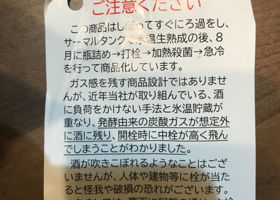 ご注意ください
この商品はしぼってすぐにろ過をし、
サーマルタンクで氷温生熟成の後、8
月に瓶詰め→打栓→加熱殺菌→急冷
を行って商品化しています。
ガス感を残す商品設計ではありませ
んが、近年当社が取り組んでいる、酒
に負荷をかけない手法と氷温貯蔵が
重なり、発酵由来の炭酸ガスが想定外
に酒に残り、開栓時に中栓が高く飛ん
でしまうことがわかりました。
酒が吹きこぼれるようなことはござ
いませんが、人体や建物等に栓が当た
ると怪我や破損の恐れがございます。